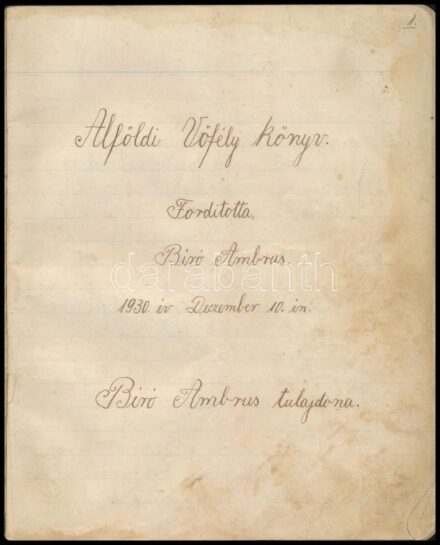 1.
Alföldi Vőfély könyv.
Forditotta,
Biró Ambrus.
darabanth
1930. év Deczember 10. én.
Biró Ambrus tulajdona.